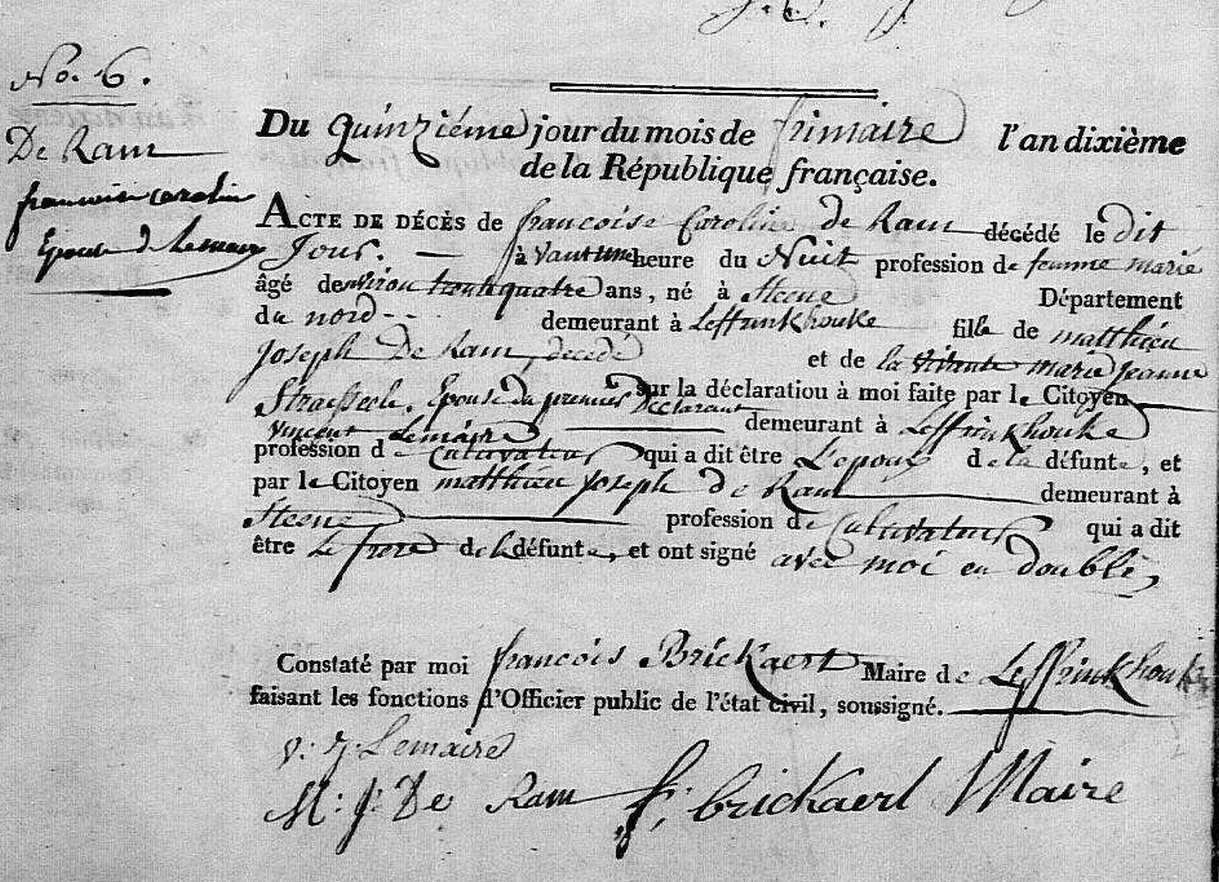 No. 6.
De Ram
francoise carolin
Epouse de Lemaire
Du quinziéme jour du mois de frimaire l'an dixième
de la République française.
ACTE DE DÉCÈS de francoise Caroline de Ram décédé le dit
Jour. — à vant une heure du Nuit profession de femme marié
âgé denviron trente quatre ans, né à Steene Département
du nord -- demeurant à Leffrinkhouke fille de matthieu
Joseph De Ram, decedé et de la vivante marie jeanne
Straesseele. Epouse du premier Déclarant sur la déclaratiou à moi faite par le Citoyen
Vincent Lemaire demeurant à Leffrinkhouke
profession de Cultivateur qui a dit être L'epoux de la défunte, et
par le Citoyen matthieu joseph de Ram demeurant à
Steene profession de Cultivateur qui a dit
être Le frere de la défunte, et ont signé avec moi en double,
Constaté par moi francois Brickaert Maire de Leffrinkhouke
faisant les fonctions d'Officier public de l'état civil, soussigné.
v: j: Lemaire
M: J: De Ram f: brickaert Maire